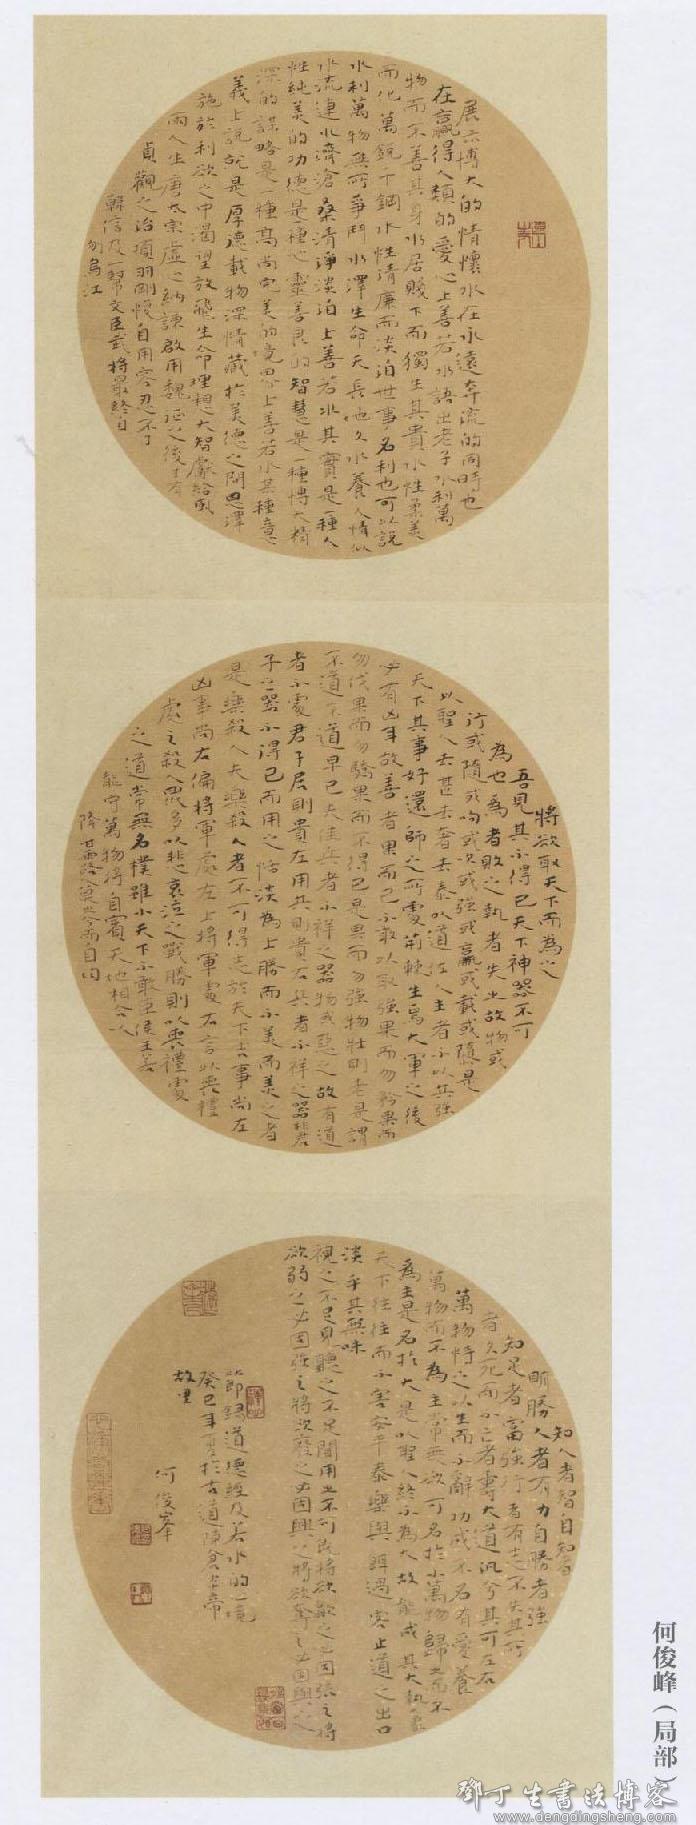 展示博大的情懷水在永遠奔流的同時也
在贏得人類的愛心上善若水語出老子水利萬
物而不善其身水居賤下而獨生其貴水性柔美
而化萬銳千鋼水性清廉而淡泊世事名利也可以說
水利萬物無所爭鬥水澤生命天長地久水養人情似
水流連水濟滄桑清淨淡泊上善若水其實是一種人
性純美的功德是一種心靈善良的智慧是一種博大精
深的謀略是一種高尚完美的境界上善若水某種意
義上說就是厚德載物深情藏於美德之間恩澤
施於利欲之中渴望放飛生命理想大智慮給
兩人生唐太宗虛心納諫啟用魏征之後才有
貞觀之治項羽剛愎自用容忍不了
韓信及一幫文臣武將最終自
刎烏江
將欲取天下而為之
吾見其不得已天下神器不可
為也為者敗之執者失之故物或
行或隨或呴或吹或強或羸或載或隳是
以聖人去甚去奢去泰以道佐人主者不以兵強
天下其事好還師之所處荊棘生焉大軍之後
必有凶年故善者果而已不敢以取強果而勿矜果而
勿伐果而勿驕果而不得已是果而勿強物壯則老是謂
不道不道早已夫佳兵者不祥之器物或惡之故有道
者不處君子居則貴左用兵則貴右兵者不祥之器非君
子之器不得已而用之恬淡為上勝而不美而美之者
是樂殺人夫樂殺人者不可得志於天下吉事尚左
凶事尚右偏將軍處左上將軍處右言以喪禮
處之殺人眾多以悲哀泣之戰勝則以喪禮處
之道常無名樸雖小天下不敢臣侯王若
能守萬物將自賓天地相合以
降甘露人莫之令而自均
知人者智自知者
明勝人者有力自勝者強
知足者富強行者有志不失其所
者久死而不亡者壽大道汎兮其可左右
萬物恃之以生而不辭功成不名有愛養
萬物而不為主常無欲可名於小萬物歸之而不
為主是名於大是以聖人終不為大故能成其大執象
天下往往而不害安平泰樂與餌過客止道之出口
淡乎其無味
視之不足見聽之不足聞用之不可既將欲歙之必固張之將
欲弱之必固強之將欲廢之必固興之將欲奪之必固與之
節錄道德經及若水的一境
癸巳年夏於古道陳倉炎帝
故里
何俊峯
何俊峰（局部）
鄧丁生書法博客
www.dengdingsheng.com